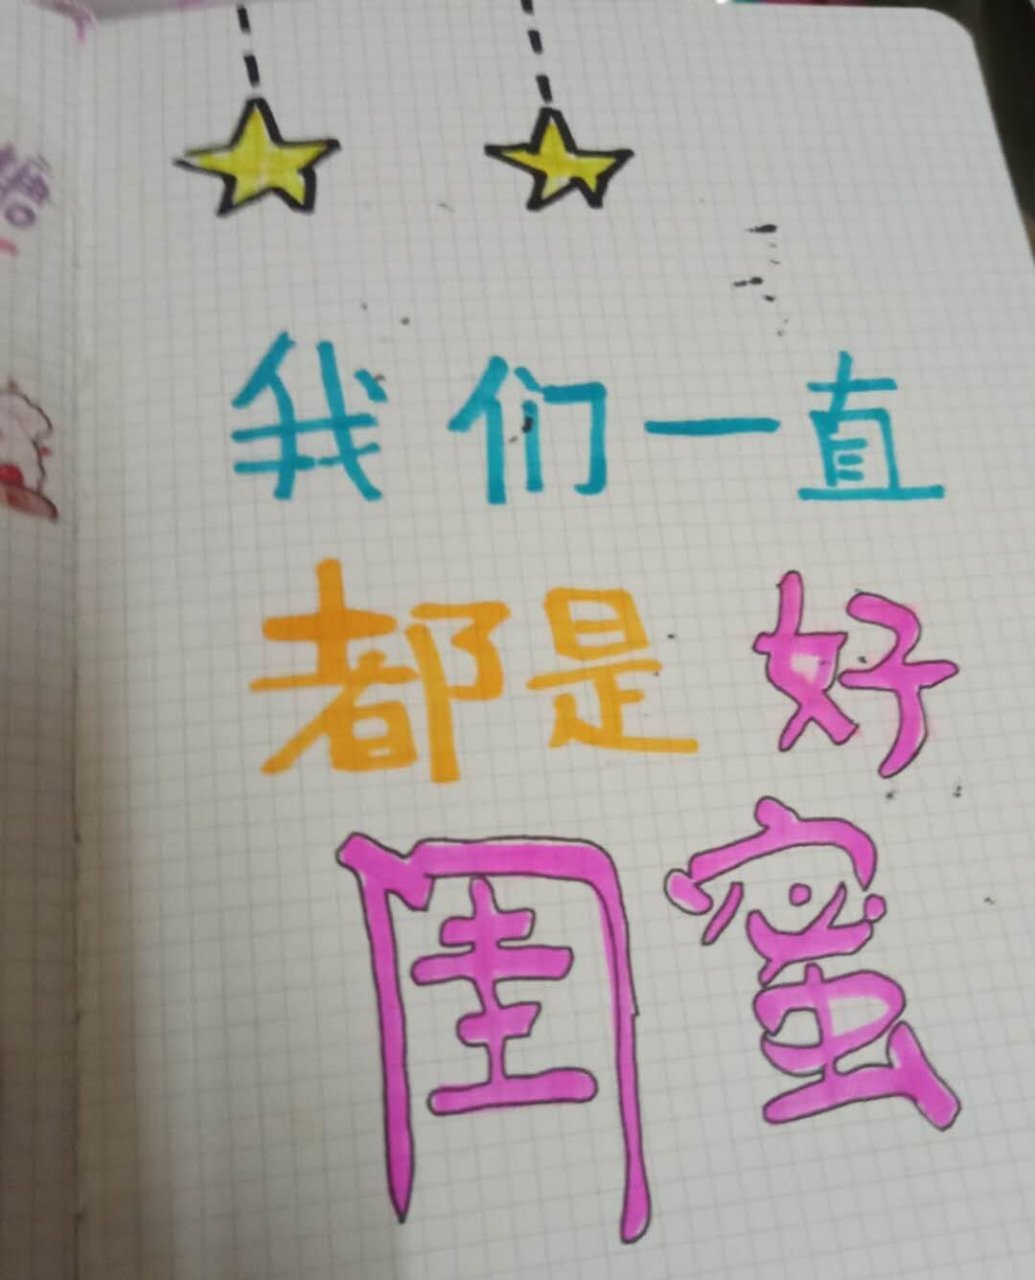 我们一直
都是好
闺蜜